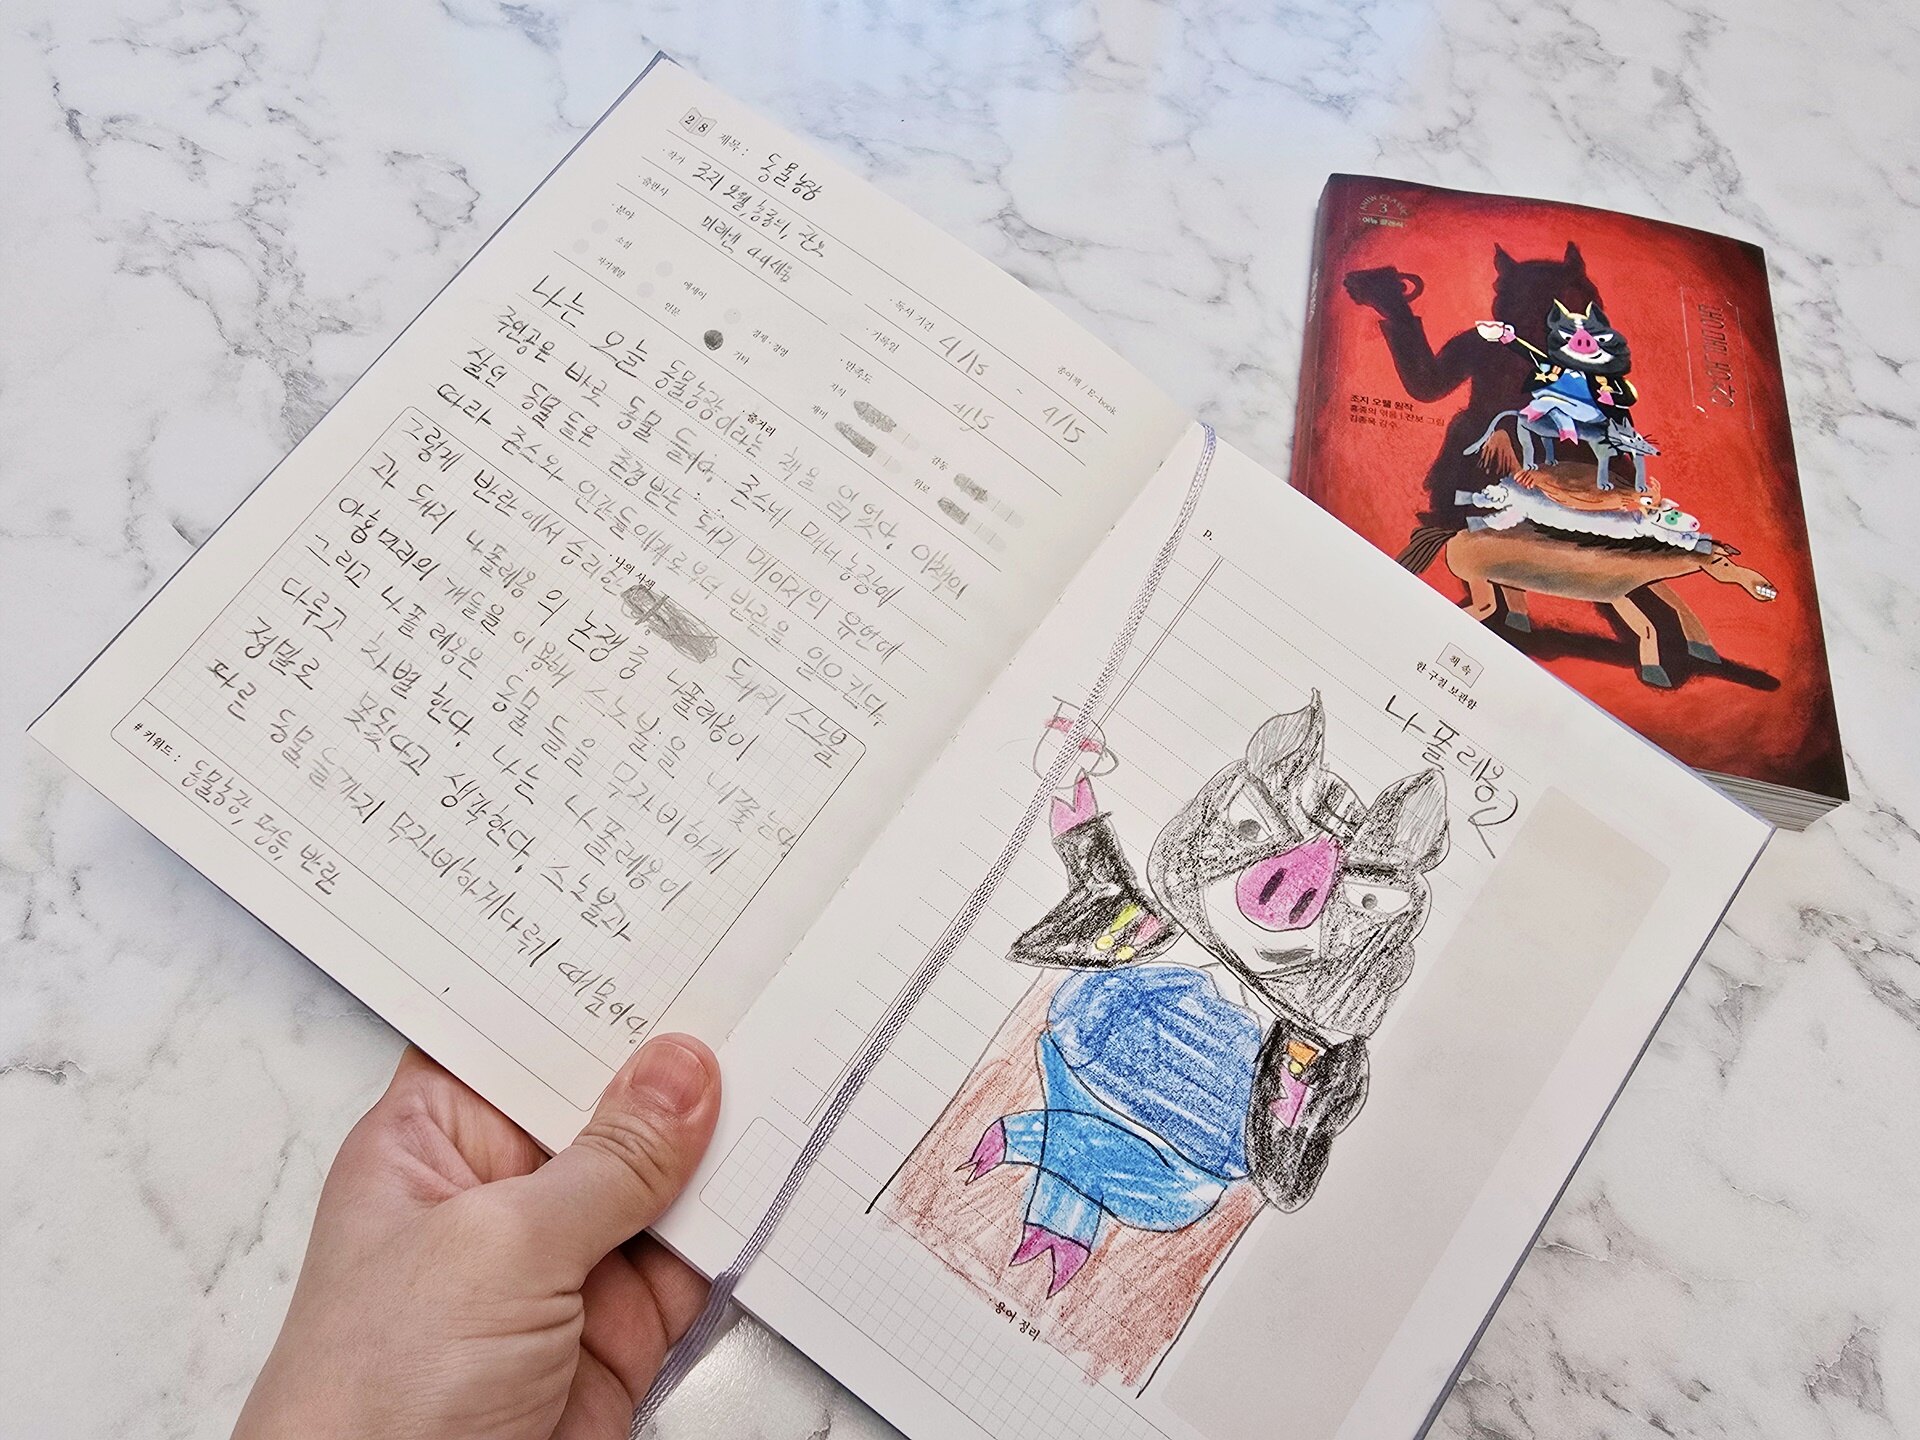 28 제목 : 동물농장
· 작가 조지 오웰, 홍종의, 잔보
· 출판사 미래엔 아이세움
· 독서 기간 4/15 ~ 4/15
종이책 / E-book
· 분야
· 기록일 4/15
소설 에세이 경제 · 경영
자기계발 인문 기타
· 만족도
지식 감동
재미 위로
· 줄거리
나는 오늘 동물농장이라는 책을 읽었다. 이책의
주인공은 바로 동물 들이다. 존스네 매너 농장에
살던 동물 들은 존경 받는 돼지 메이저의 유언에
따라 존스와 인간들에게로 부터 반란을 일으킨다.
· 나의 사색
그렇게 반란에서 승리한 돼지 스노볼
과 돼지 나폴레옹 의 논쟁 중 나폴레옹이
아홉마리의 개들을 이용해 스노볼을 내쫓는다.
그리고 나폴레옹은 동물 들을 무자비하게
다루고 차별 한다. 나는 나폴레옹이
정말로 못됐다고 생각한다. 스노볼과
다른 동물들까지 무자비하게 다뤄기 때문이다.
# 키워드 : 동물농장, 평등, 반란
P.
책 속
한 구절 보관함
나폴레옹
· 용어 정리
3
이뉴 클래식
조지 오웰 원작
홍종의 엮음 | 잔보 그림
김종욱 감수